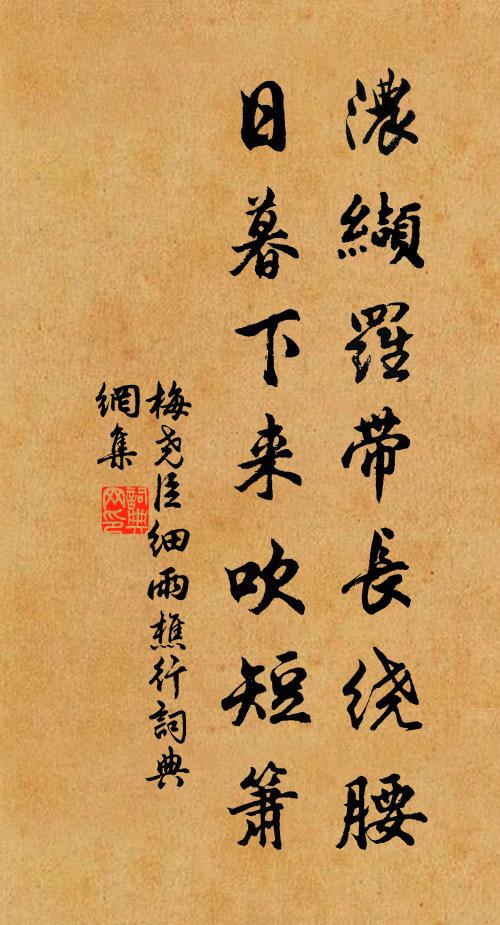 濃纈羅帶長绕腰
日暮下来吹短簫
梅堯臣细雨樵行詞典
網集
詞典
网印